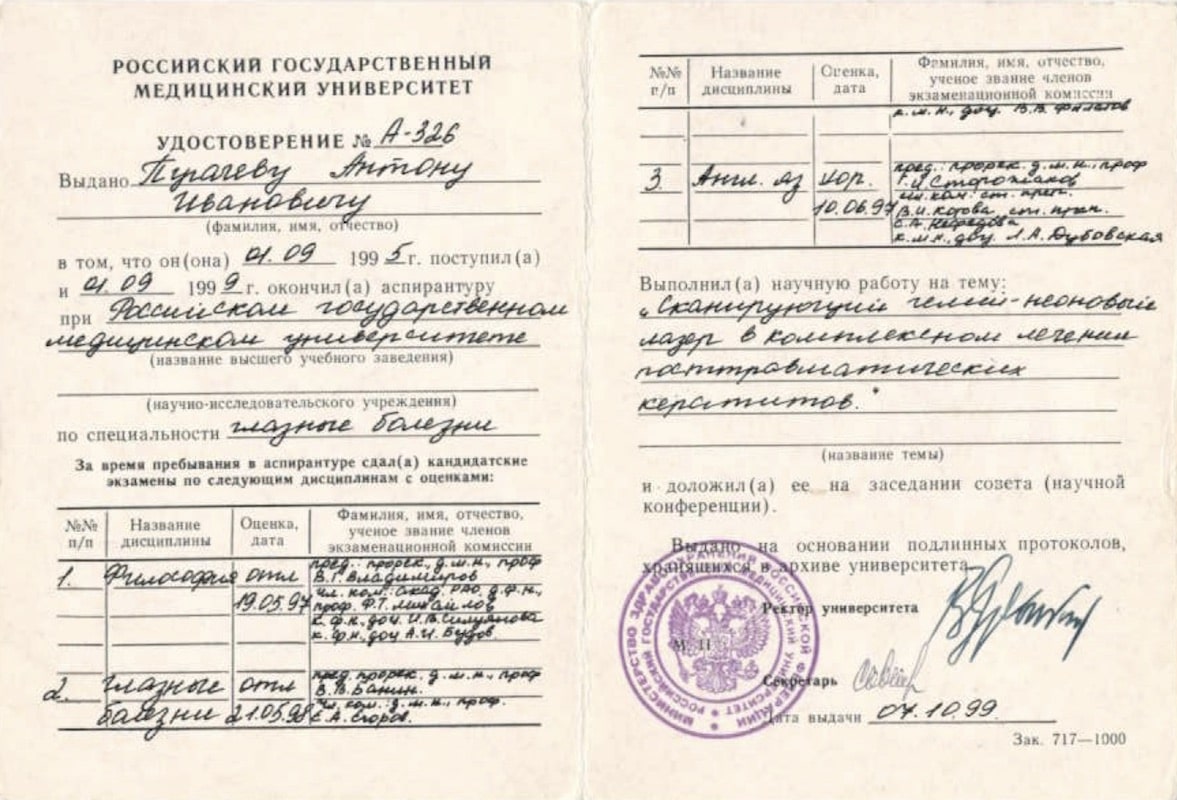 РОССИЙСКИЙ ГОСУДАРСТВЕННЫЙ
МЕДИЦИНСКИЙ УНИВЕРСИТЕТ
УДОСТОВЕРЕНИЕ № А-326
Выдано Пугачеву Антону
Ивановичу
(фамилия, имя, отчество)
в том, что он(она) 01.09 1995 г. поступил(а)
и 01.09 1999 г. окончил(а) аспирантуру
при Российском государственном
медицинском университете
(название высшего учебного заведения)
(научно-исследовательского учреждения)
по специальности глазные болезни
За время пребывания в аспирантуре сдал(а) кандидатские
экзамены по следующим дисциплинам с оценками:
№№ п/п Название дисциплины Оценка, дата Фамилия, имя, отчество, ученое звание членов экзаменационной комиссии
1. Философия отл пред.: прорек., д.м.н., проф
В.Г. Владимиров
19.05.97 чл. ком: акад. РАО, д.ф.н.,
проф. Ф.Т. Михайлов
к.ф.н, доц. И.В. Силуянова
к.ф.н, доц А.И.
2. глазные отл пред. прорек., д.м.н., проф
В.В. Банин.
болезни 21.05.98 чл. ком.: д.м.н., проф.
Е.А. Егоров.
№№ п/п Название дисциплины Оценка, дата Фамилия, имя, отчество, ученое звание членов экзаменационной комиссии
к.м.н., доц. В.В. Филатов
3. Англ. яз хор. пред.: прорек. д.м.н., проф
Г.И Сторожаков
10.06.97 чл. ком: ст. преп.
В.И. Котова ст. преп.
С.А. Нефедова
к.м.н., доц. Л.А. Дубовская
Выполнил(а) научную работу на тему:
„Сканирующий гелий-неоновый
лазер в комплексном лечении
посттравматических
кератитов."
(название темы)
и доложил(а) ее на заседании совета (научной
конференции).
Выдано на основании подлинных протоколов,
хранящихся в архиве университета.
Ректор университета
М. П.
Секретарь
Дата выдачи 07.10.99.
Зак. 717—1000
МИНИСТЕРСТВО ЗДРАВООХРАНЕНИЯ РОССИЙСКОЙ ФЕДЕРАЦИИ
РОССИЙСКИЙ ГОСУДАРСТВЕННЫЙ МЕДИЦИНСКИЙ УНИВЕРСИТЕТ